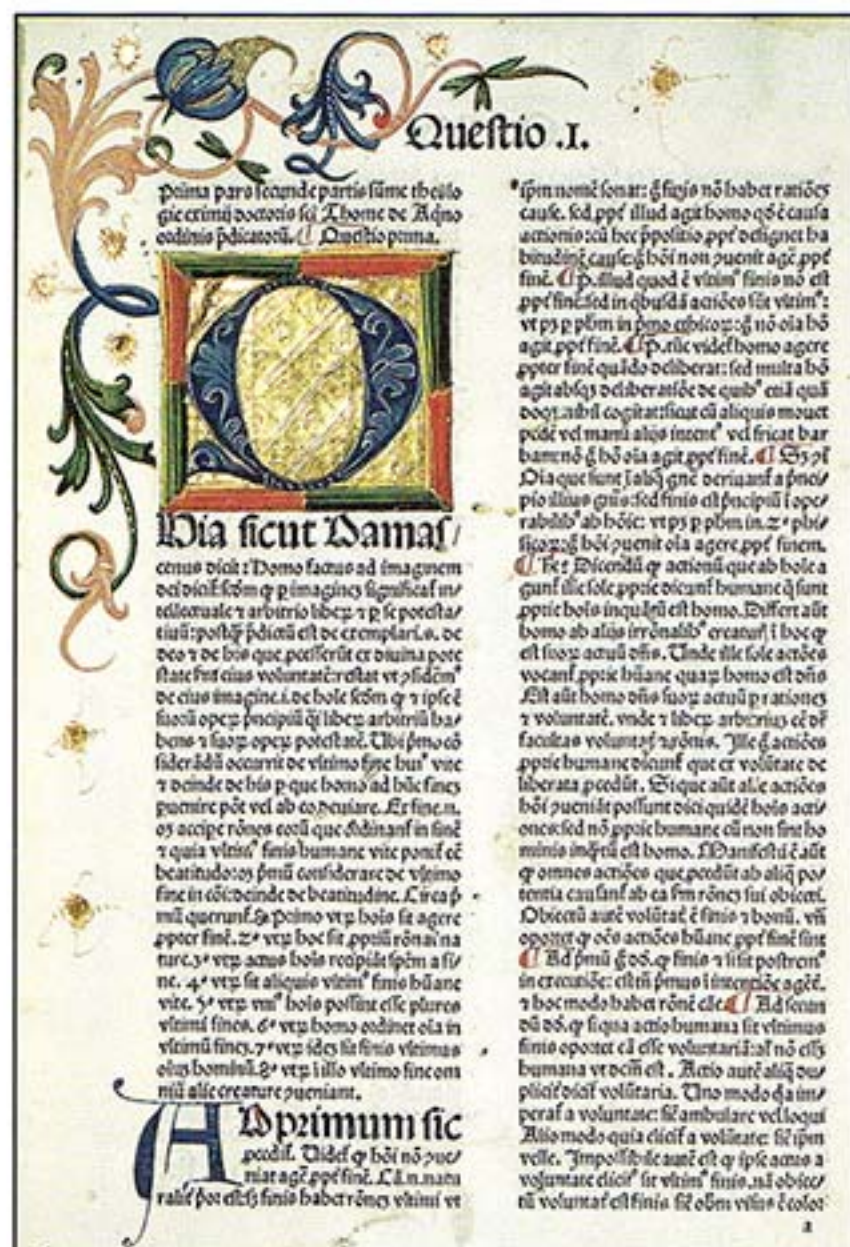 Questio .I.
Prima pars secunde partis sũme theolo
gie eximij doctoris sc̃i Thome de Aq̃no
ordinis p̃dicatoꝝ. ¶ Questio prima.
O
Nia sicut Damaſ/
cenus dicit: Homo factus ad imaginem
dei dicit̃: ſcd̃m ꝙ ꝑ imaginẽ ſignificat̃ in/
tellectuale ⁊ arbitrio liberꝝ ⁊ ꝑ ſe poteſta/
tiuũ: poſtꝙ̃ p̃dictũ eſt de exemplari.ſ. de
deo ⁊ de his que ꝓceſſerũt ex diuina pote
ſtate ſm̃ eius voluntatẽ: reſtat vt ꝯſiderem᷒
de eius imagine.i. de hoĩe ſcd̃m ꝙ ⁊ ipſe ẽ
ſuoꝝ operꝝ principiũ q̃ſi liberꝝ arbitriũ ha/
bens ⁊ ſuoꝝ operꝝ poteſtatẽ. Ubi p̃mo cõ
ſiderãdũ occurrit de vltimo fine hui᷒ vite
⁊ deinde de his ꝑ que homo ad hũc finẽ
ꝑuenire põt vel ab eo deuiare. Ex fine.n.
oꝫ accipe rõnes eoꝝ que ordinant̃ in finẽ
⁊ quia vltim᷒ finis humane vite ponit̃ eẽ
beatitudo: oꝫ p̃mũ conſiderare de vltimo
fine in cõi: deinde de beatitudine. Circa p̃
mũ querunt̃.8. Primo vtrꝝ hoĩs ſit agere
ꝓpter finẽ. 2° vtrꝝ hoc ſit ꝓpriũ rõnal̃ na
ture. 3° vtrꝝ actus hoĩs recipiãt ſpẽm a fi/
ne. 4° vtrꝝ ſit aliquis vltim᷒ finis hũane
vite. 5° vtrꝝ vni᷒ hoĩs poſſint eſſe plures
vltimi fines. 6° vtrꝝ homo ordinet oĩa in
vltimũ finẽ. 7° vtrꝝ idẽ ſit finis vltimus
oĩuꝫ hominũ. 8° vtrꝝ ĩ illo vltimo fine om
niũ alie creature ꝯueniant.
AD primum ſic
ꝓcedit̃. Uidet̃ ꝙ hõi nõ ꝯue/
niat agẽ ꝓpt̃ finẽ. Cã.n. natu
ralit̃ por eſt: ſꝫ finis habet rõnẽ vltimi vt
ip̃m nomẽ ſonat: g̃ finis nõ habet rationẽ
cauſe. ſed ꝓpt̃ illud agit homo qd̃ ẽ cauſa
actionis: cũ hec p̃poſitio, ꝓpt̃ deſignet ha
bitudinẽ cauſe: g̃ hõi non ꝯuenit agẽ ꝓpt̃
finẽ. ¶ P̃. illud quod ẽ vltim᷒ finis nõ eſt
ꝓpt̃ finẽ: ſed in q̃buſdã actiões ſũt vltim᷒:
vt pꝫ ꝑ ph̃m in p̃mo ethicoꝝ: g̃ nõ oĩa hõ
agit ꝓpt̃ finẽ. ¶ P̃. tũc videt̃ homo agere
ꝓpter finẽ quãdo deliberat: ſed multa hõ
agit abſqꝫ deliberatiõe de quib᷒ etiã quã
doqꝫ nihil cogitat: ſicut cũ aliquis mouet
pedẽ vel manũ alijs intent᷒ vel fricat bar
bam: nõ g̃ hõ oĩa agit ꝓpt̃ finẽ. ¶ Sꝫ ꝯ̃
Oĩa que ſunt ĩ aliq̃ gñe deriuant̃ a p̃nci/
pio illius gñis: ſed finis eſt p̃ncipiũ ĩ ope/
rabilib᷒ ab hoĩe: vt pꝫ ꝑ ph̃m in.2° phi/
ſicoꝝ: g̃ hõi ꝯuenit oĩa agere ꝓpt̃ finem.
¶ Dicendũ ꝙ actionũ que ab hoĩe a
gunt̃ ille ſole ꝓprie dicunt̃ humane q̃ ſunt
ꝓprie hoĩs inquãtũ eſt homo. Differt aũt
homo ab alijs irrõnalib᷒ creatur̃ ĩ hoc ꝙ
eſt ſuoꝝ actuũ dñs. Unde ille ſole actiões
vocant̃ ꝓprie hũane quarꝝ homo eſt dñs
Eſt aũt homo dñs ſuoꝝ actuũ ꝑ rationẽ
⁊ voluntatẽ. vnde ⁊ liberꝝ arbitriũ eẽ dr̃
facultas voluntat̃ ⁊ rõnis. Ille g̃ actiões
ꝓprie humane dicunt̃ que ex volũtate de
liberata ꝓcedũt. Si que aũt alie actiões
hõi ꝯueniãt poſſunt dici quidẽ hoĩs acti/
ones: ſed nõ ꝓprie humane cũ non ſint ho
minis inq̃tũ eſt homo. Manifeſtũ ẽ aũt
ꝙ omnes actiões que ꝓcedũt ab aliq̃ po/
tentia cauſant̃ ab ea ſm̃ rõnẽ ſui obiecti.
Obiectũ autẽ volũtat̃ ẽ finis ⁊ bonũ. vñ
oportet ꝙ oẽs actiões hũane ꝓpt̃ finẽ ſint
¶ Ad p̃mũ g̃ dõ. ꝙ finis ⁊ ſi ſit poſtrem᷒
in executiõe: eſt tñ p̃mus ĩ intentiõe agẽt̃.
⁊ hoc modo habet rõnẽ cãe. ¶ Ad ſecun
dũ dõ. ꝙ ſi qua actio humana ſit vltimus
finis oportet eã eſſe voluntariã: al̃ nõ eſſꝫ
humana vt dc̃m eſt. Actio autẽ aliq̃ du/
pliciť dicit̃ volũtaria. Uno modo q̃a im/
perat̃ a voluntate: ſic̃ ambulare vel loqui
Alio modo quia elicit̃ a volũtate: ſic̃ ip̃m
velle. Impoſſibile autẽ eſt ꝙ ipſe actus a
voluntate elicit᷒ ſit vltim᷒ finis. nã obiec/
tũ voluntat̃ eſt finis ſic̃ obm̃ viſus ẽ color
a